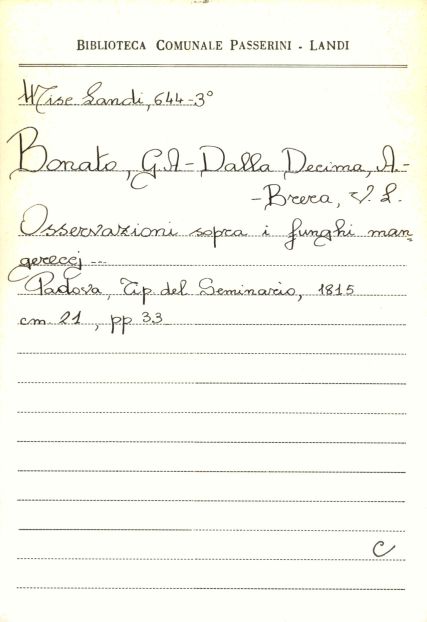 BIBLIOTECA COMUNALE PASSERINI - LANDI
Misc Landi, 644-3°
Bonato, G.A- Dalla Decima, A.-
-Brera, V. L.
Osservazioni sopra i funghi man=
gereccj ...
Padova, Tip del Seminario, 1815
cm 21, pp 33
C